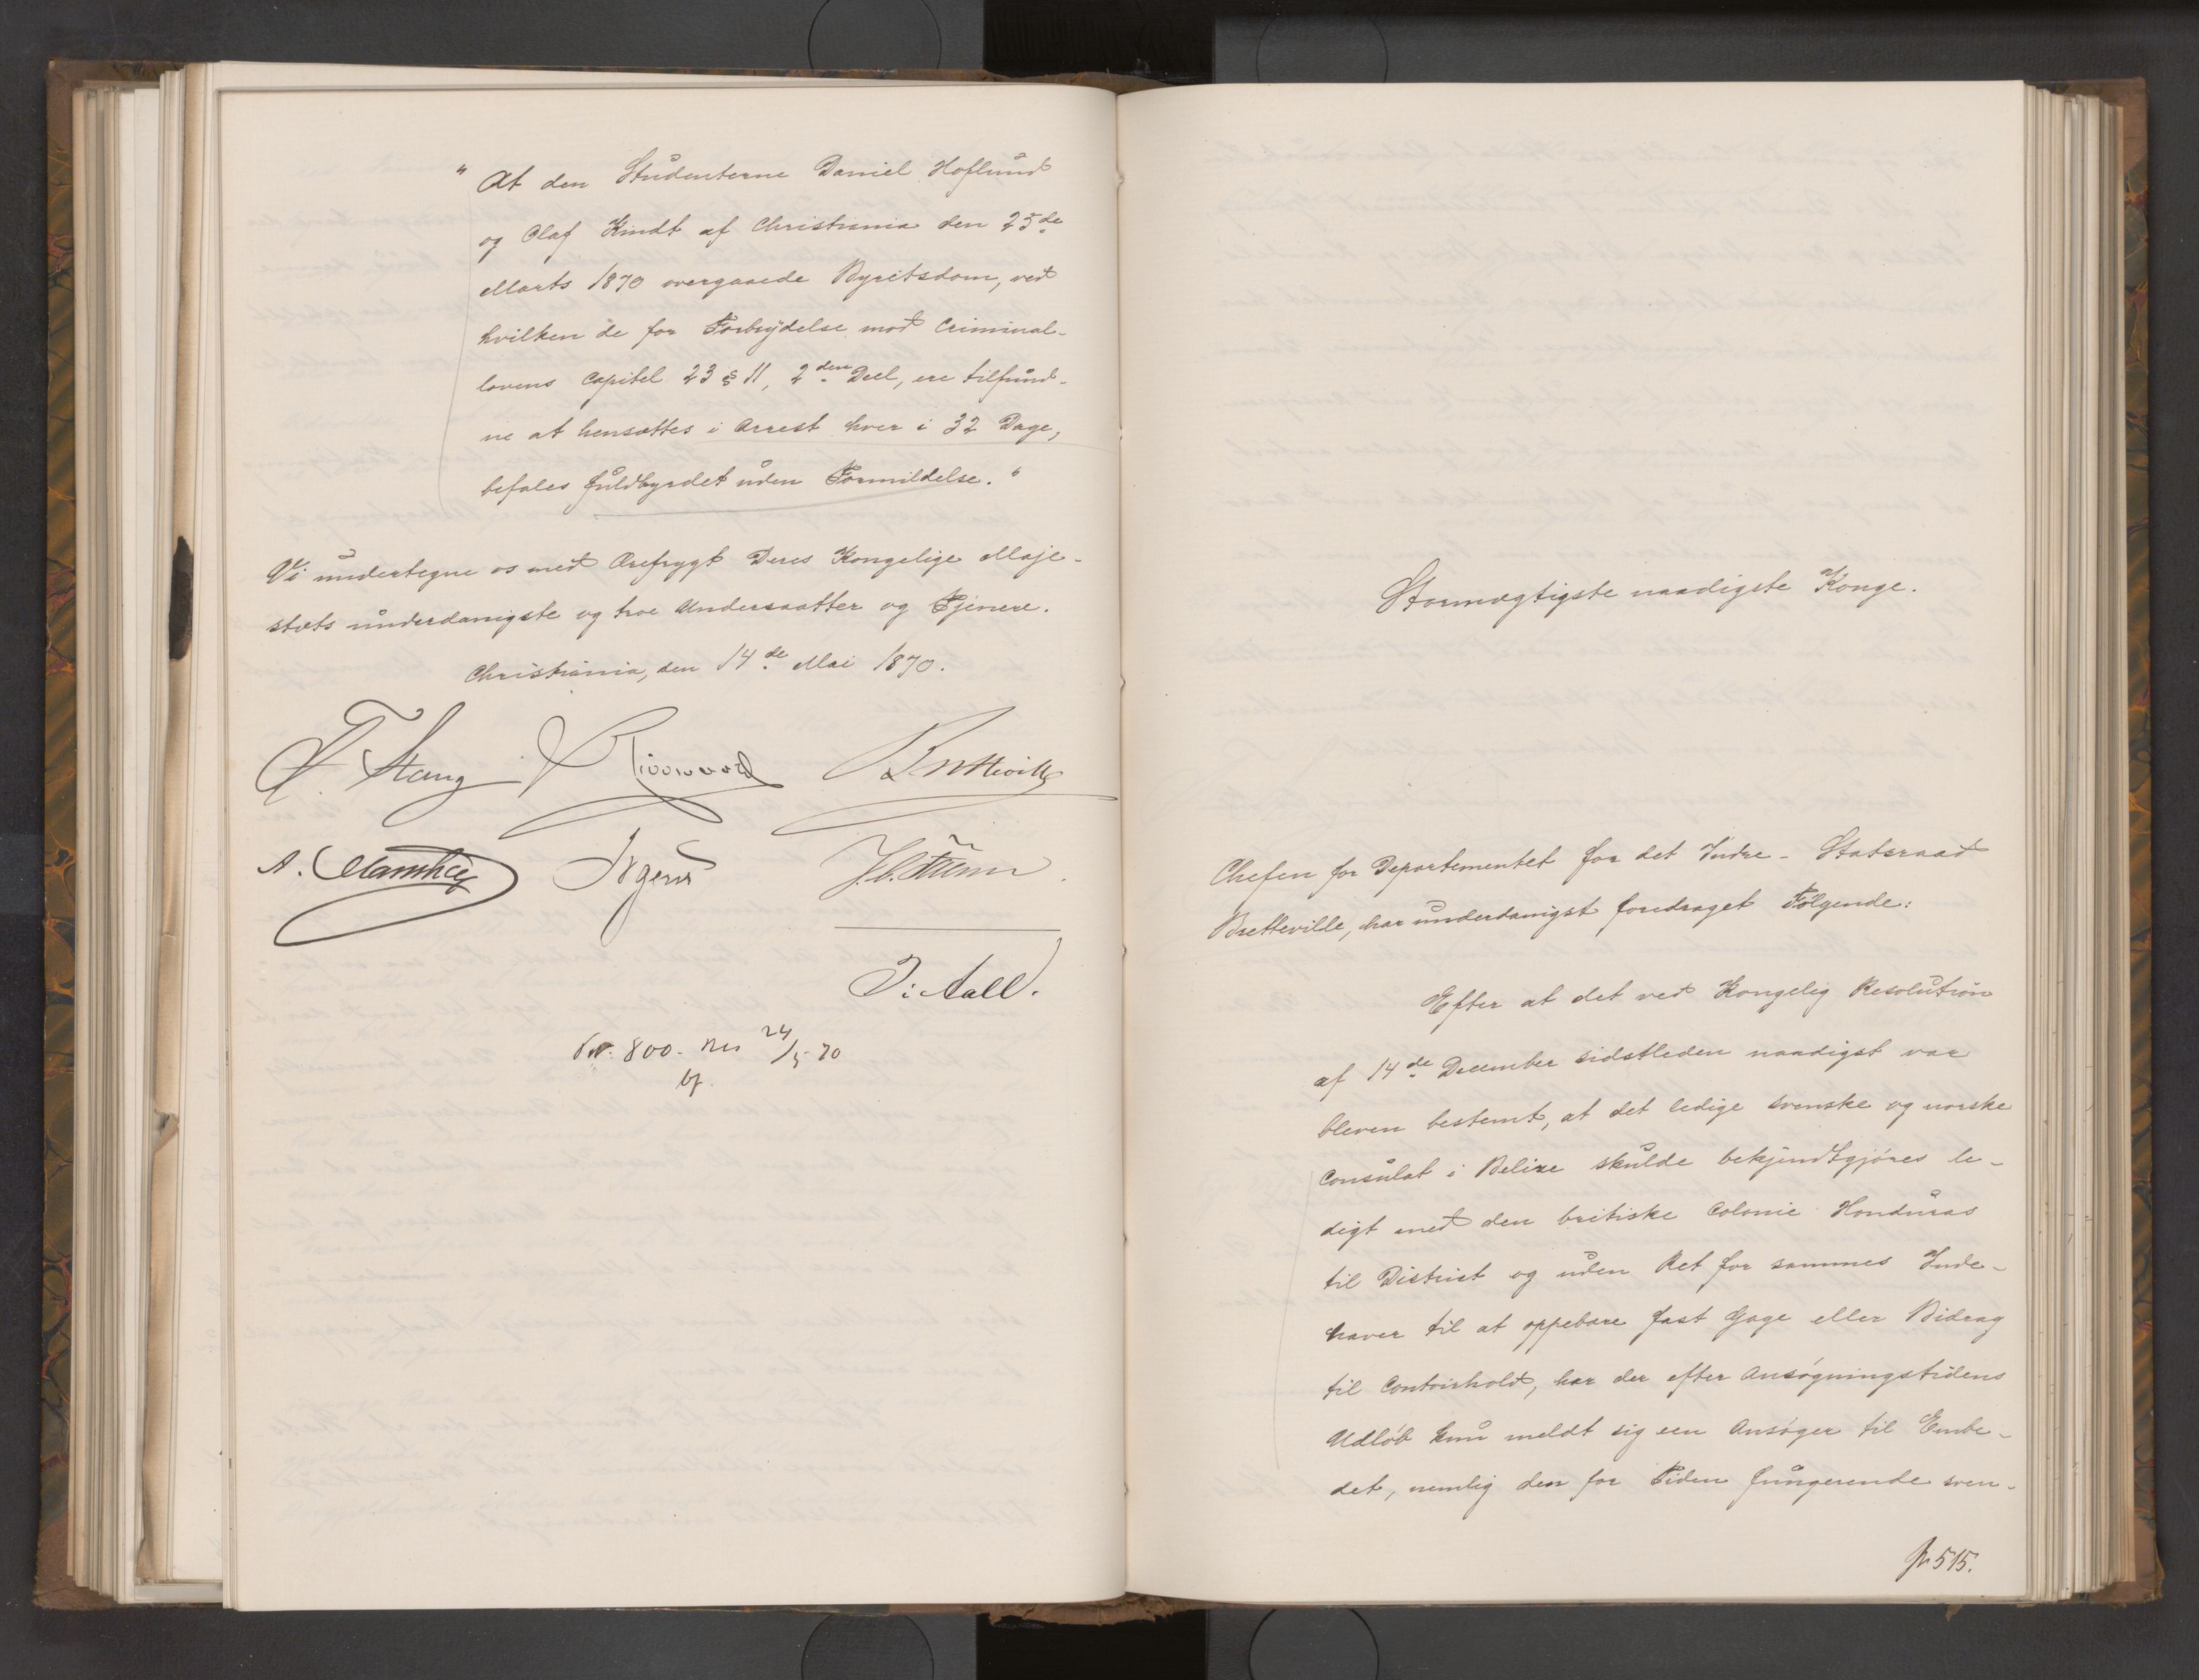 "At den Studenterne Daniel Hoflund
og Olaf Kindt af Christiania den 25de
Marts 1870 overgaaede Byretsdom, ved
hvilken de for Forbrydelse mod Criminal-
lovens Capitel 23 § 11, 2den Deel, ere tilfund-
ne at hensættes i Arrest hver i 32 Dage,
befales fuldbyrdet uden Formildelse."
Vi undertegne os med Ærefrygt Deres Kongelige Maje-
stæts underdanigste og troe Undersaatter og Tjenere.
Christiania, den 14de Mai 1870.
F. Stang
Bretteville
A. Manthey Irgens
J. Aall.
No. 800. 24/5-70
Stormægtigste naadigste Konge.
Chefen for Departementet for det Indre - Statsraad
Bretteville, har underdanigst foredraget Følgende:
Efter at det ved Kongelig Resolution
af 14de December sidstleden naadigst var
bleven bestemt, at det ledige svenske og norske
Consulat i Belize skulde bekjendtgjøres le-
digt med den britiske Colonie Honduras
til District og uden Ret for sammes Inde-
haver til at oppebære fast Gage eller Bidrag
til Contoirhold, har der efter Ansøgningstidens
Udløb kun meldt sig een Ansøger til Embe-
det, nemlig den for Tiden fungerende sven-
515.